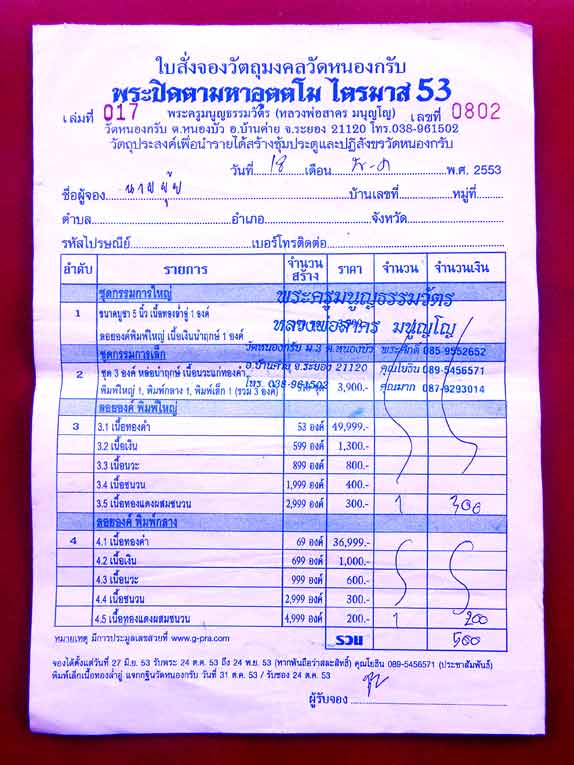 ใบสั่งจองวัตถุมงคลวัดหนองกรับ
พระปิดตามหาอุตตโม ไตรมาส 53
เล่มที่ 017 พระครูมนูญธรรมวัตร (หลวงพ่อสาคร มนุญโญ) เลขที่ 0802
วัดหนองกรับ ต.หนองบัว อ.บ้านค่าย จ.ระยอง 21120 โทร.038-961502
วัตถุประสงค์เพื่อนำรายได้สร้างซุ้มประตูและปฏิสังขรวัดหนองกรับ
วันที่ 18 เดือน พ.ศ. 2553
ชื่อผู้จอง นาย บ้านเลขที่ หมู่ที่
ตำบล อำเภอ จังหวัด
รหัสไปรษณีย์ เบอร์โทรติดต่อ
ลำดับ รายการ จำนวนสร้าง ราคา จำนวน จำนวนเงิน
ชุดกรรมการใหญ่
พระครูมนูญธรรมวัตร
1 ขนาดบูชา 5 นิ้ว เนื้อทองล่ำอู่ 1 องค์
หลวงพ่อสาคร มนุญโญ
ลอยองค์พิมพ์ใหญ่ เนื้อเงินนำฤกษ์ 1 องค์
วัดหนองกรับ ม.3 ต.หนองบัว พระศักดิ์ 085-9552652
ชุดกรรมการเล็ก
อ.บ้านค่าย จ.ระยอง 21120 คุณโยธิน 089-5456571
2 ชุด 3 องค์ หล่อนำฤกษ์ เนื้อนวะแก่ทองคำ
โทร. 038-961502 คุณมาก 087-9293014
พิมพ์ใหญ่ 1, พิมพ์กลาง 1, พิมพ์เล็ก 1 (รวม 3 องค์) ชุด 3,900.-
ลอยองค์ พิมพ์ใหญ่
3 3.1 เนื้อทองคำ 53 องค์ 49,999.-
3.2 เนื้อเงิน 599 องค์ 1,300.-
3.3 เนื้อนวะ 899 องค์ 800.-
3.4 เนื้อชนวน 1,999 องค์ 400.-
3.5 เนื้อทองแดงผสมชนวน 2,999 องค์ 300.- 1 300
ลอยองค์ พิมพ์กลาง
4 4.1 เนื้อทองคำ 69 องค์ 36,999.-
4.2 เนื้อเงิน 699 องค์ 1,000.-
4.3 เนื้อนวะ 999 องค์ 600.-
4.4 เนื้อชนวน 2,999 องค์ 300.-
4.5 เนื้อทองแดงผสมชนวน 4,999 องค์ 200.- 1 200
หมายเหตุ มีการประมูลเลขสวยที่ www.g-pra.com รวม 500
จองได้ตั้งแต่วันที่ 27 มิ.ย. 53 รับพระ 24 ต.ค. 53 ถึง 24 พ.ย. 53 (หากพ้นถือว่าสละสิทธิ์) คุณโยธิน 089-5456571 (ประชาสัมพันธ์)
พิมพ์เล็กเนื้อทองล่ำอู่ แจกกฐินวัดหนองกรับ วันที่ 31 ต.ค. 53 / รับซอง 24 ต.ค. 53
ผู้รับจอง